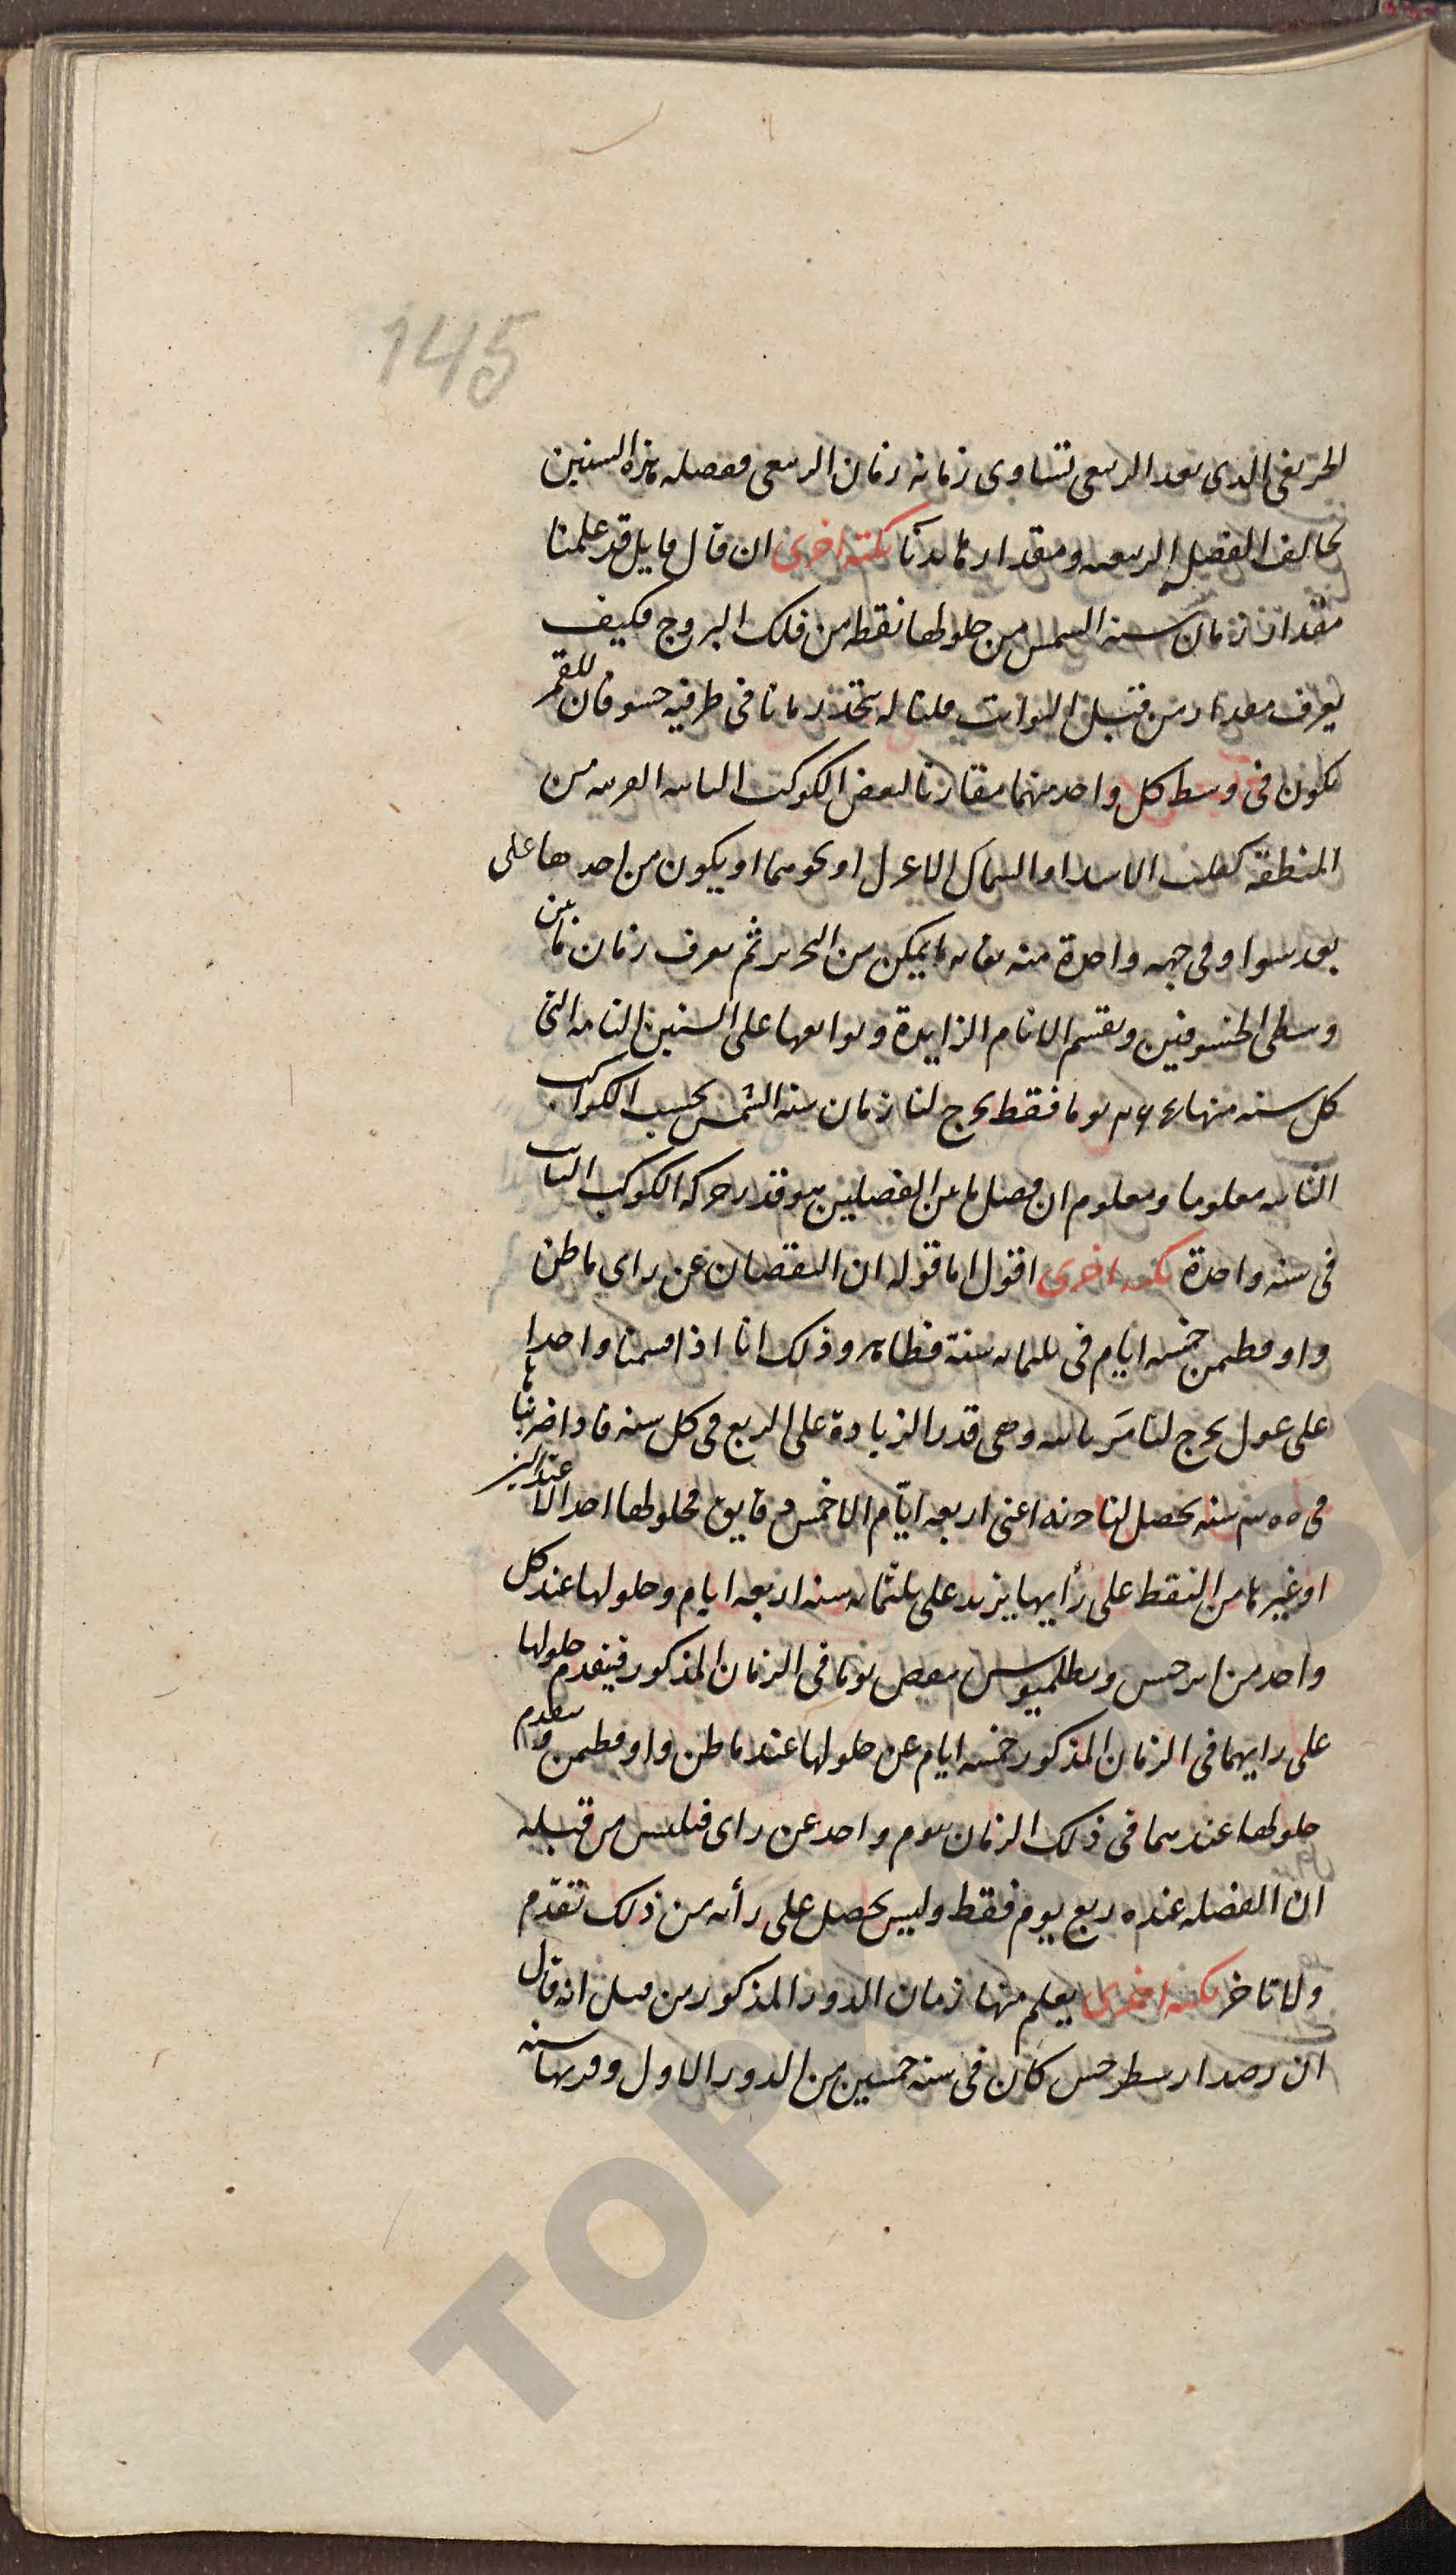 145
الخريفى الذى بعد الربيعى تتساوى زمانه زمان الربيعى وفصله بهذه السنين
تخالف الفصل الربيعيه ومقدار ما بدنا نكتة اخرى ان قال قايل قد علمنا
مقدار زمان سنة الشمس من حلولها نقطه من فلك البروج فكيف
يعرف مقداره من قبل الثوابت قلنا له يتخذ زمانا فى طرفيه خسوفان للقمر
يكون فى وسط كل واحد منهما مقارنا لبعض الكوكب الثابته القريبه من
المنطقة كقلب الاسد او السماك الاعزل او نحوهما او يكون من احدها على
بعد سوا وفى جهه واحدة منه بغايه ما يمكن من التحرير ثم يعرف زمان ما بين
وسطى الخسوفين ويقسم الايام الزايدة وتوابعها على السنين التامه التى
كل سنه منها ٣٦٥ يوما فقط يخرج لنا زمان سنة الشمس بحسب الكواكب
الثابته معلوما ومعلوم ان فصل ما بين الفصلين هو قدر حركه الكوكب الثابت
فى سنه واحدة نكته اخرى اقول اما قوله ان النقصان عن راى ماطن
واوقطمن خمسه ايام فى ثلثمايه سنة فظاهر وذلك انا اذا قسمنا واحدا
على عول يخرج لنا ثالثه وهى قدر الزيادة على الربع فى كل سنه فاذا ضربناها
فى ٣٠٠ سنه يحصل لنا اعنى اربعه ايّام الا خمس دقايق فحلولها احد الاعتدالين
او غيرها من النقط على رأيهما يزيد على ثلثمايه سنه اربعه ايام وحلولها عند كل
واحد من ابرخس وبطلميوس ينقص يوما فى الزمان المذكور فيتقدم حلولها
على رايهما فى الزمان المذكور خمسه ايام عن حلولها عند ماطن واوقطمن ويتقدم
حلولها عندهما فى ذلك الزمان بيوم واحد عن راى فيلبس من قبله
ان الفضله عنده ربع يوم فقط وليس يحصل على رأيه من ذلك تقدّم
ولا تاخر نكته اخرى يعلم منها زمان الدور المذكور من قبل انه قال
ان رصد ارسطرخس كان فى سنه خمسين من الدور الاول